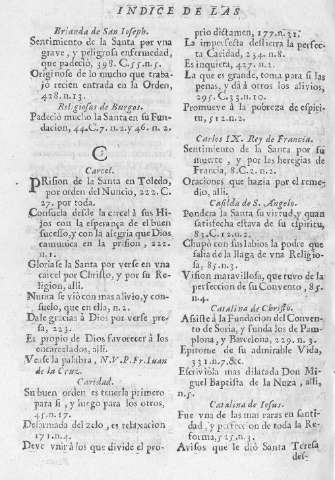 INDICE DE LAS
Brianda de San Ioseph.
Sentimiento de la Santa por vna
grave, y peligrosa enfermedad,
que padeciò, 398. C.55.n.5.
Originòse de lo mucho que traba-
jò recien entrada en la Orden,
428.n.13.
Religiosas de Burgos.
Padeciò mucho la Santa en su Fun-
dacion, 44.C.7.n.2.y 46. n.2.
C
Carcel.
PRision de la Santa en Toledo,
por orden del Nuncio, 222.C.
27. por toda.
Consuela desde la carcel à sus Hi-
jos con la esperança de el buen
sucesso, y con la alegria que Dios
comunica en la prision, 222.
n.1.
Gloriase la Santa por verse en vna
carcel por Christo, y por su Re-
ligion, alli.
Nunca se viò con mas alivio, y con-
suelo, que en ella, n.2.
Dale gracias à Dios por verse pre-
sa, 223.
Es propio de Dios favorecer à los
encarcelados, alli.
Vease la palabra, N.V.P.Fr.Iuan
de la Cruz.
Caridad.
Su buen orden es tenerla primero
para si, y luego para los otros,
45.n.17.
Desarmada del zelo, es relaxacion
171.n.4.
Deve vnir à los que divide el pro-
prio dictamen, 177.n.31.
La imperfecta destierra la perfec-
ta Caridad, 234.n.8.
Es inquieta, 427.n.2.
La que es grande, toma para si las
penas, y dà à otros los alivios,
295.C.13.n.10.
Promueve à la pobreza de espiri-
tu, 512.n.2.
Carlos IX. Rey de Francia.
Sentimiento de la Santa por su
muerte, y por las heregias de
Francia, 8.C.2.n.2.
Oraciones que hazia por el reme-
dio, alli.
Casilda de S. Angelo.
Pondera la Santa su virtud, y quan
satisfecha estava de su espiritu,
83.C.12.n.2.
Chupò con sus labios la podre que
salia de la llaga de vna Religio-
sa, 85.n.3.
Vision maravillosa, que tuvo de la
perfeccion de su Convento, 85.
n.4.
Catalina de Christo.
Assiste à la Fundacion del Conven-
to de Soria, y funda los de Pam-
plona, y Barcelona, 229. n.3.
Epitome de su admirable Vida,
331.n.7.&c.
Escriviòla mas dilatada Don Mi-
guel Baptista de la Nuza, alli,
n.5.
Catalina de Iesus.
Fue vna de las mas raras en santi-
dad, y perfeccion de toda la Re-
forma, 525.n.3.
Avisos que le diò Santa Teresa
des-